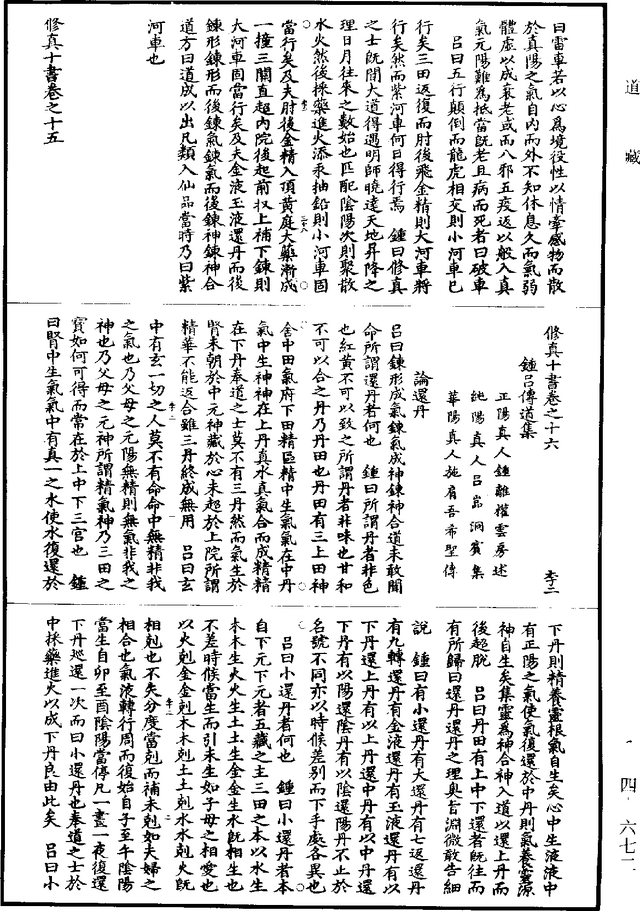 道藏
曰雷車若以心爲境役性以情牽感物而散
於真陽之氣自內而外不知休息久而氣弱
體虛以成衰老或而八邪五疫返以般入真
氣元陽難爲抵當既老且病而死者曰破車
呂曰五行顛倒而龍虎相交則小河車已
行矣三田返復而肘後飛金精則大河車將
行矣然而紫河車何日得行焉　鍾曰修真
之士既聞大道得遇明師曉達天地昇降之
理日月往來之數始也匹配陰陽次則聚散
水火然後採藥進火添汞抽鉛則小河車固
當行矣及夫肘後金精入頂黃庭大藥漸成
一撞三關直超內院後起前收上補下鍊則
大河車固當行矣及夫金液玉液還丹而後
鍊形鍊形而後鍊氣鍊氣而後鍊神鍊神合
道方曰道成以出凡類入仙品當時乃曰紫
河車也
修真十書卷之十五
修真十書卷之十六　李三
鍾呂傳道集
正陽真人鍾離權雲房述
純陽真人呂嵒洞賓集
華陽真人施肩吾希聖傳
論還丹
呂曰鍊形成氣鍊氣成神鍊神合道未敢聞
命所謂還丹者何也　鍾曰所謂丹者非色
也紅黃不可以致之所謂丹者非味也甘和
不可以合之丹乃丹田也丹田有三上田神
舍中田氣府下田精區精中生氣氣在中丹
氣中生神神在上丹真水真氣合而成精精
在下丹奉道之士莫不有三丹然而氣生於
腎未朝於中元神藏於心未超於上院所謂
精華不能返合雖三丹終成無用　呂曰玄
中有玄一切之人莫不有命命中無精非我
之氣也乃父母之元陽無精則無氣非我之
神也乃父母之元神所謂精氣神乃三田之
寶如何可得而常在於上中下三宫也　鍾
曰腎中生氣氣中有真一之水使水復還於
下丹則精養靈根氣自生矣心中生液液中
有正陽之氣使氣復還於中丹則氣養靈源
神自生矣集靈爲神合神入道以還上丹而
後超脫　呂曰丹田有上中下還者既往而
有所歸曰還丹還丹之理奧旨淵微敢告細
說　鍾曰有小還丹有大還丹有七返還丹
有九轉還丹有金液還丹有玉液還丹有以
下丹還上丹有以上丹還中丹有以中丹還
下丹有以陽還陰丹有以陰還陽丹不止於
名號不同亦以時候差別而下手處各異也
呂曰小還丹者何也　鍾曰小還丹者本
自下元下元者五藏之主三田之本以水生
木木生火火生土土生金金生水既相生也
不差時候當生而引未生如子母之相愛也
以火剋金金剋木木剋土土剋水水剋火既
相剋也不失分度當剋而補未剋如夫婦之
相合也氣液轉行周而復始自子至午陰陽
當生自卯至酉陰陽當停凡一晝一夜復還
下丹巡還一次而曰小還丹也奉道之士於
中採藥進火以成下丹良由此矣　呂曰小
四·六七二